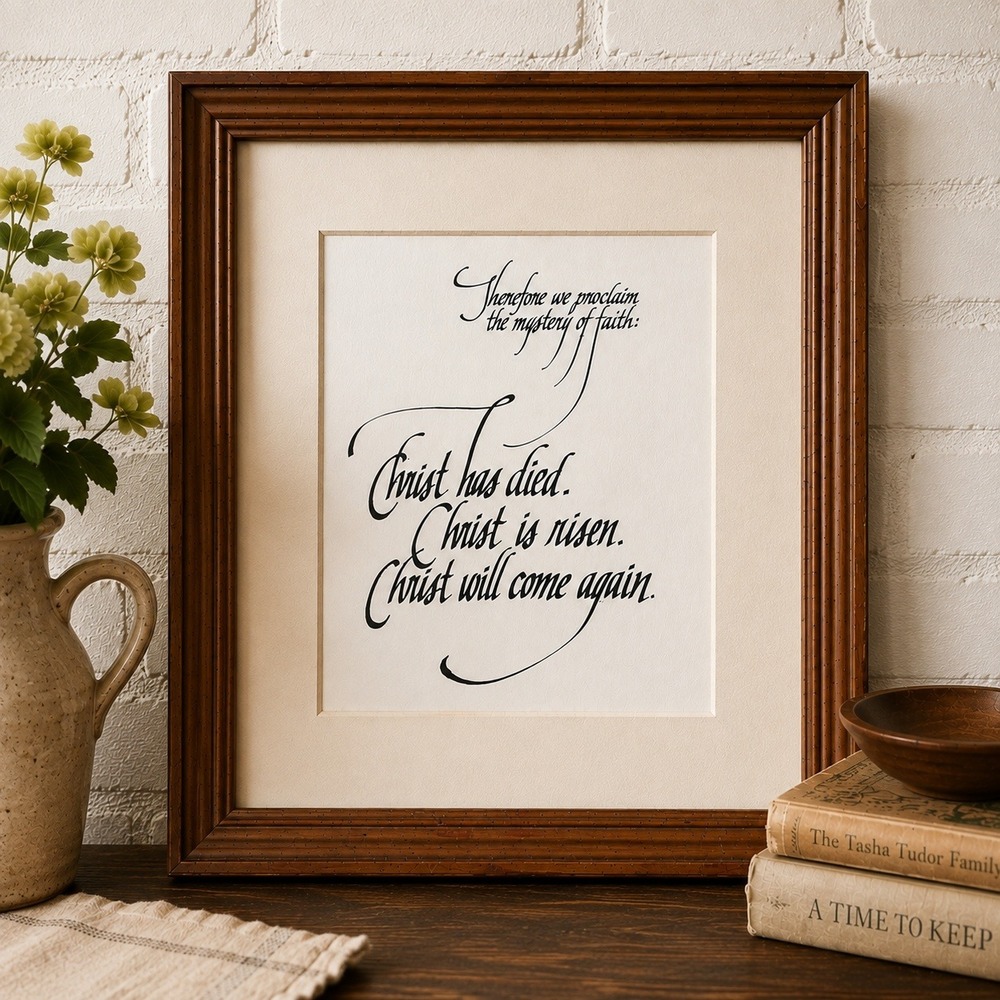 Therefore we proclaim
the mystery of faith:
Christ has died.
Christ is risen.
Christ will come again.
The Tasha Tudor Family
A TIME TO KEEP